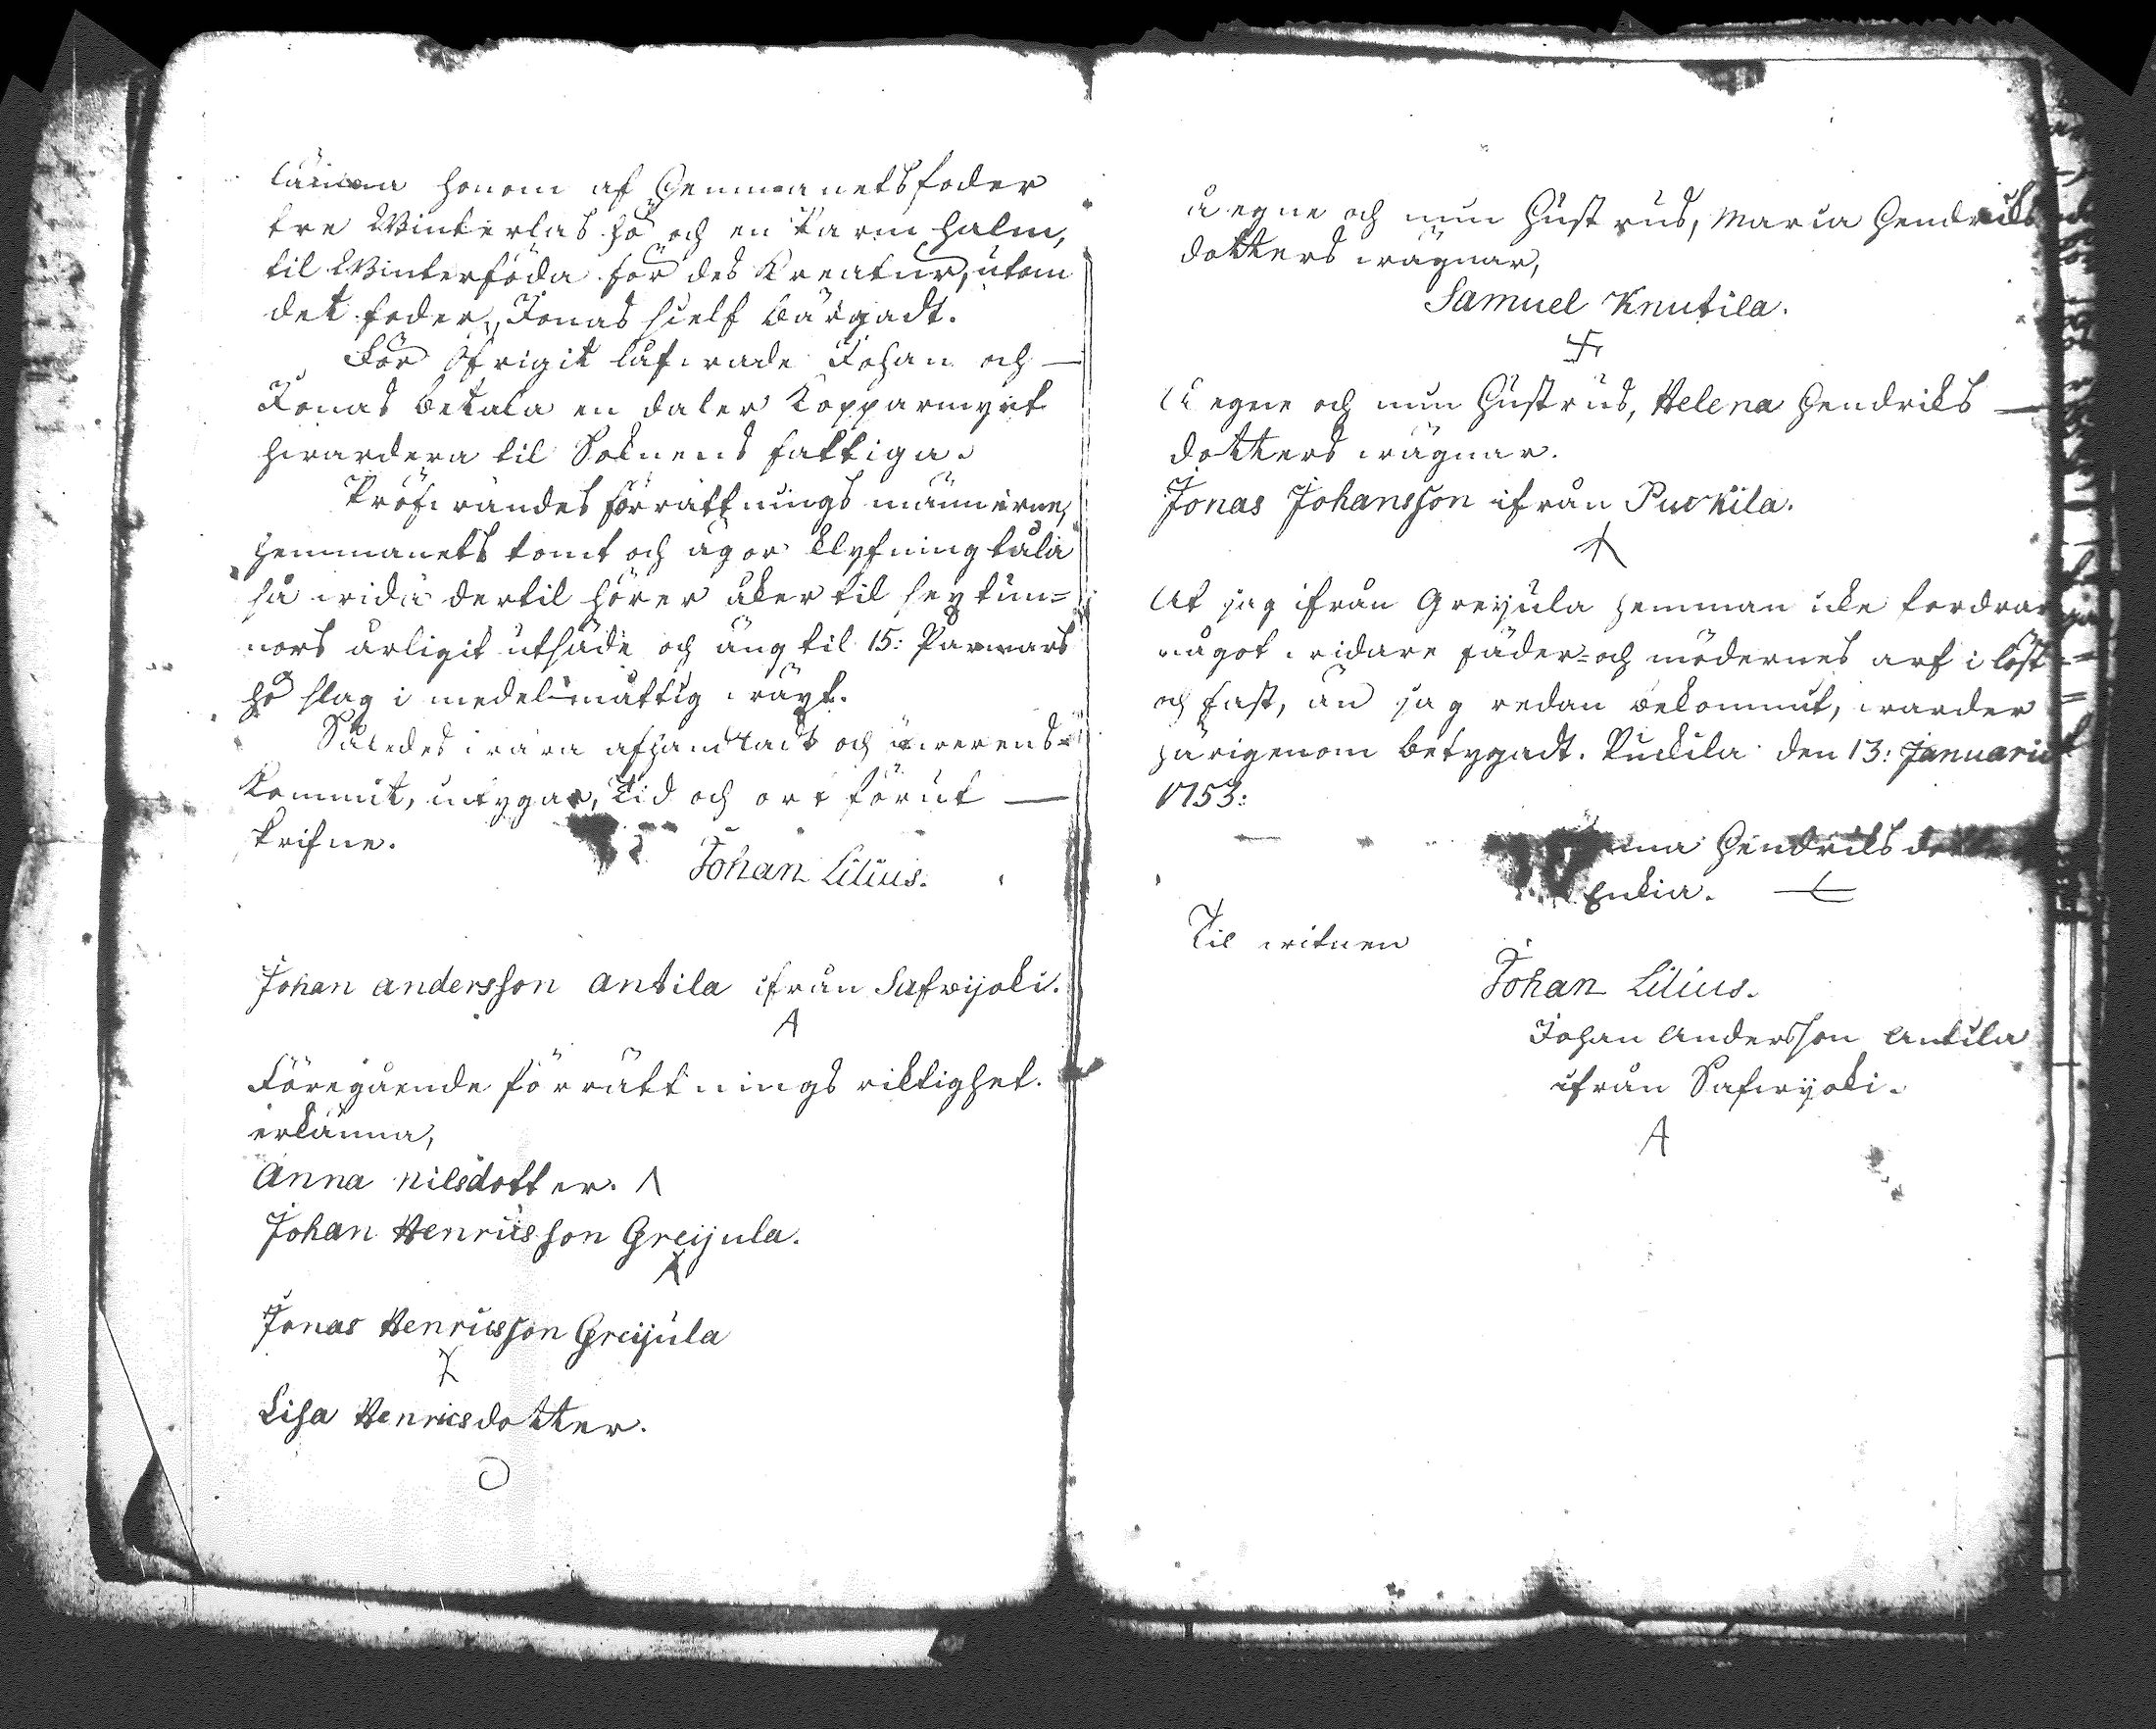 lämna honom af Hemmanets foder
tre Winterlas hö och en Parm halm,
til Winterföda för des Kreatur, utom
det foder, Jonas sielf bärgadt.
För öfrigit låfwade Johan och —
Jonas betala en daler Kopparmynt
hwardera til Soknens fattiga.
Pröfwandes förrättnings männerne,
hemmanets tomt och ägor klyfning tåla
så wida dertil hörer åker til sex tun=
nors årligit utsäde och äng til 15: Parmars
hö slag i medelmåttig wäxt.
Således wara afhandladt och öfwerens=
kommit, intygar, Tid och ort förut —
skrifne.
Johan Lilius.
Johan Andersson Antila ifrån Safwijoki.
A
Föregående förrättnings riktighet
erkänna,
Anna Nilsdotter. Λ
Johan Henricsson Greijula.
Jonas Henricsson Greijula
Lisa Henricsdotter.
å egne och min Hustrus, Maria Hendriks
dotters wägnar,
Samuel Knutila.
Å egne och min Hustrus, Helena Hendriks —
dotters wägnar.
Jonas Johansson ifrån Purkila.
At jag ifrån Greijula hemman icke fordrar
något widare fäder= och mödernes arf i löst
och fast, än jag redan bekommit, warder
härigenom betygadt. Purkila den 13: Januarii
1753:
Hendriksdotter
Enkia.
Til witnen
Johan Lilius.
Johan Andersson Antila
ifrån Safwijoki.
A